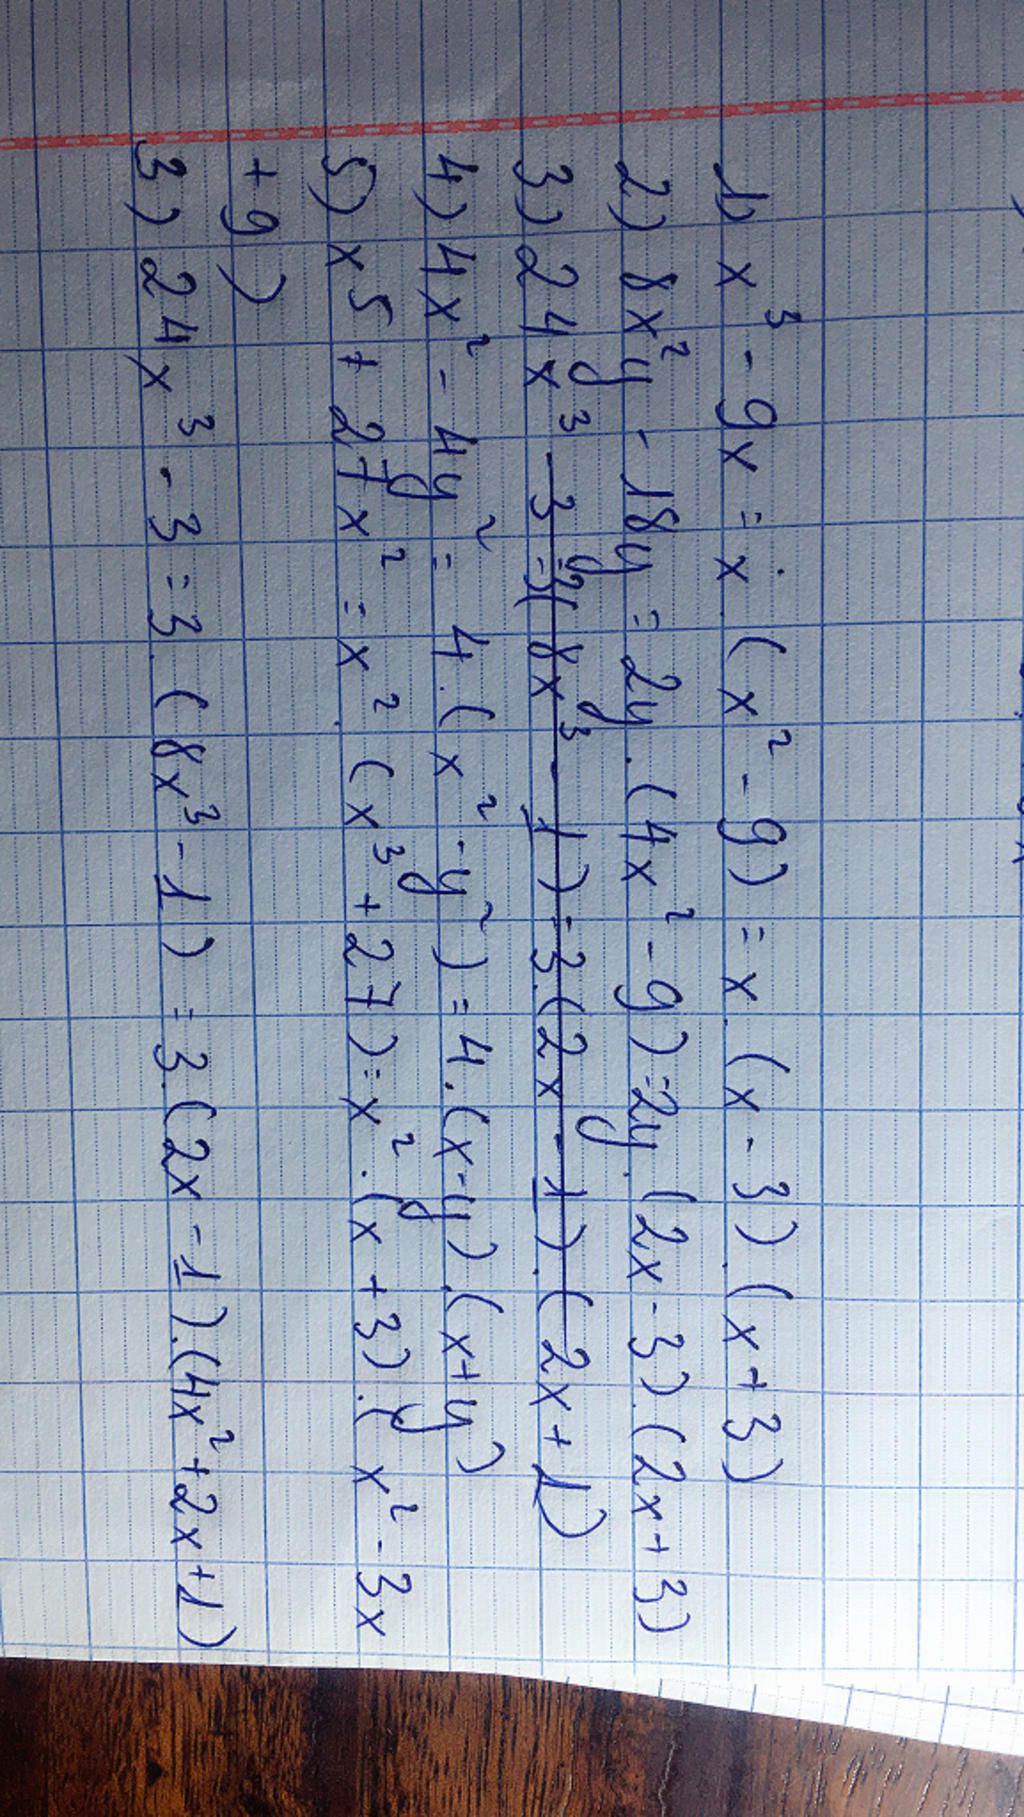 1) x³ - 9x = x . (x² - 9) = x . (x - 3) . (x + 3)
2) 8x²y - 18y = 2y . (4x² - 9) = 2y . (2x - 3) . (2x + 3)
3) 24x³ - 3 = 3(8x³ - 1) = 3.(2x - 1).(2x + 1)
4) 4x² - 4y² = 4 . (x² - y²) = 4 . (x - y) . (x + y)
5) x5 + 27x² = x² . (x³ + 27) = x² . (x + 3) . (x² - 3x
+ 9)
3) 24x³ - 3 = 3 . (8x³ - 1) = 3 . (2x - 1) . (4x² + 2x + 1)